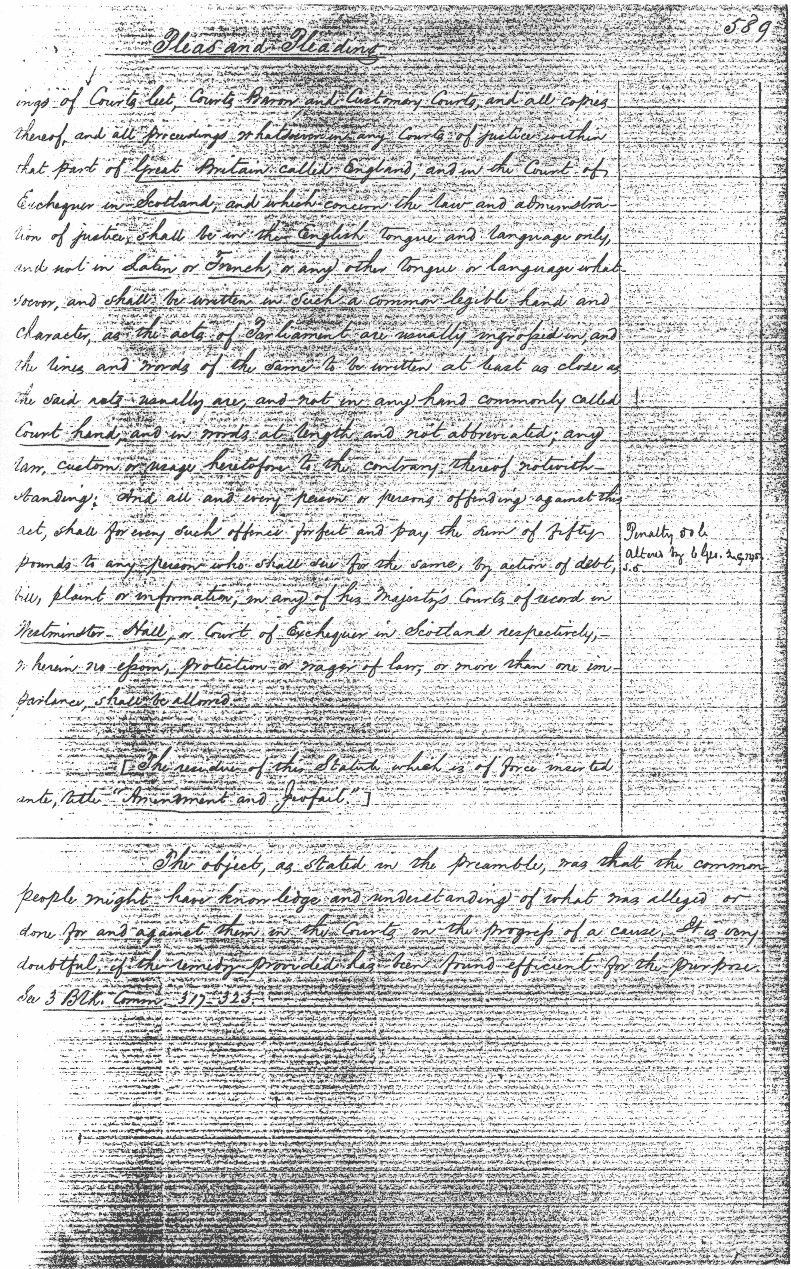 589
Pleas and Pleading
ings of Courts leet, Courts Baron and Customary Courts, and all copies
thereof, and all proceedings whatsoever in any Courts of justice within
that part of Great Britain called England, and in the Court of
Exchequer in Scotland, and which concern the law and administra-
tion of justice, shall be in the English tongue and language only,
and not in Latin or French, or any other tongue or language what-
soever, and shall be written in such a common legible hand and
character, as the acts of Parliament are usually ingrossed in, and
the lines and words of the same to be written at least as close as
the said acts usually are, and not in any hand commonly called
Court hand, and in words at length and not abbreviated; any
law, custom or usage heretofore to the contrary thereof notwith-
standing: And all and every person or persons offending against this
act, shall for every such offence forfeit and pay the sum of fifty
pounds to any person who shall sue for the same, by action of debt,
bill, plaint or information, in any of his Majesty's Courts of record in
Westminster-Hall, or Court of Exchequer in Scotland respectively,-
wherein no essoin, protection or wager of law, or more than one im-
parlance, shall be allowed.
Penalty 50 £
altered by 6 Geo. 2
s. 5.
[The residue of this Statute which is of force inserted
ante, title "Amendment and Jeofail."]
The object, as stated in the preamble, was that the common
people might have knowledge and understanding of what was alleged or
done for and against them in the Courts in the progress of a cause. It is very
doubtful, if the remedy provided has been found efficient for the purpose.
See 3 Blk. Comm. 317-323.